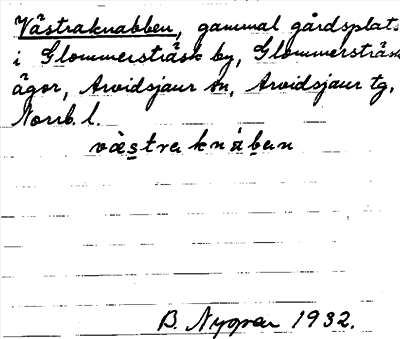 Västraknabben, gammal gårdsplats
i Glommersträsk by, Glommersträsk
ägor, Arvidsjaur sn, Arvidsjaur tg,
Norrb. l.
västraknàban
B. Nygren 1932.